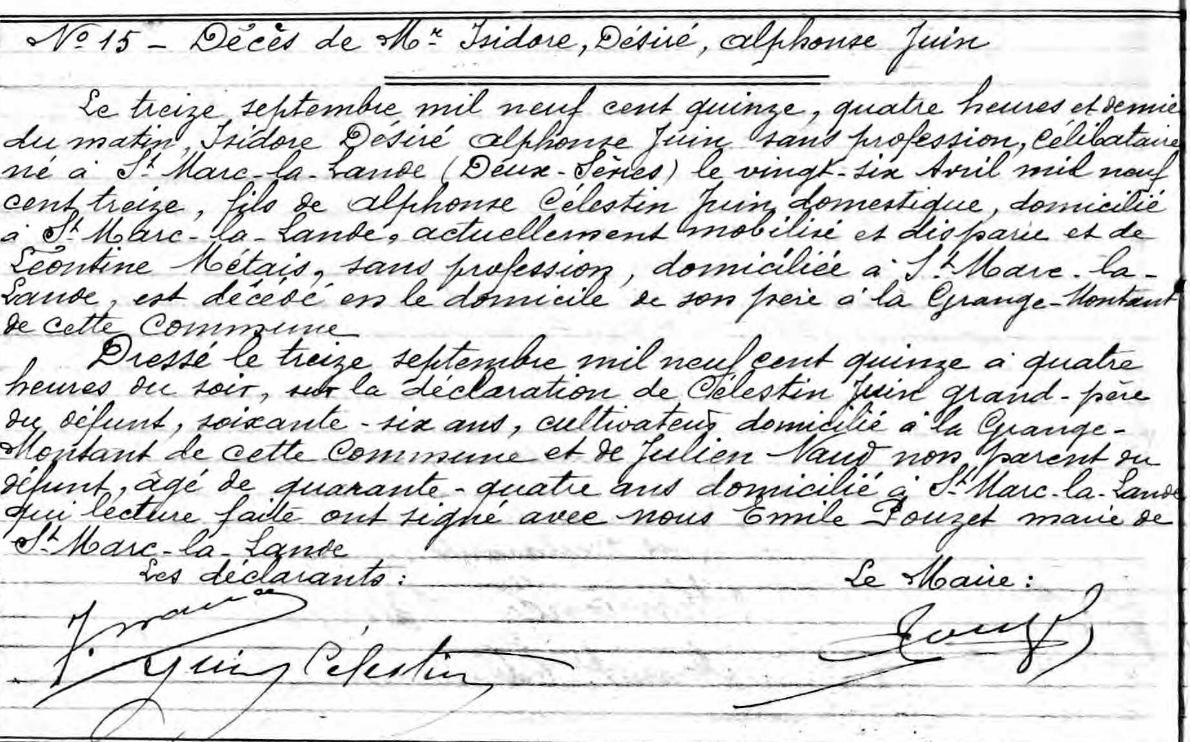 N° 15 - Décès de Mr Isidore, Désiré, Alphonse Juin
Le treize septembre mil neuf cent quinze, quatre heures et demie
du matin, Isidore Désiré Alphonse Juin sans profession, célibataire
né à St Marc-la-Lande (Deux-Sèvres) le vingt-six Avril mil neuf
cent treize, fils de Alphonse Célestin Juin domestique, domicilié
à St Marc-la-Lande, actuellement mobilisé et disparu et de
Léontine Métais, sans profession, domiciliée à St Marc-la-
Lande, est décédé en le domicile de son père à la Grange-Montant
de cette Commune
Dressé le treize septembre mil neuf cent quinze à quatre
heures du soir, sur la déclaration de Célestin Juin grand-père
du défunt, soixante-six ans, cultivateur domicilié à la Grange-
Montant de cette Commune et de Julien Naud non parent du
défunt, âgé de quarante-quatre ans domicilié à St Marc-la-Lande
qui lecture faite ont signé avec nous Emile Pouzet maire de
St Marc-la-Lande
Les déclarants : Le Maire :
Juin Célestin